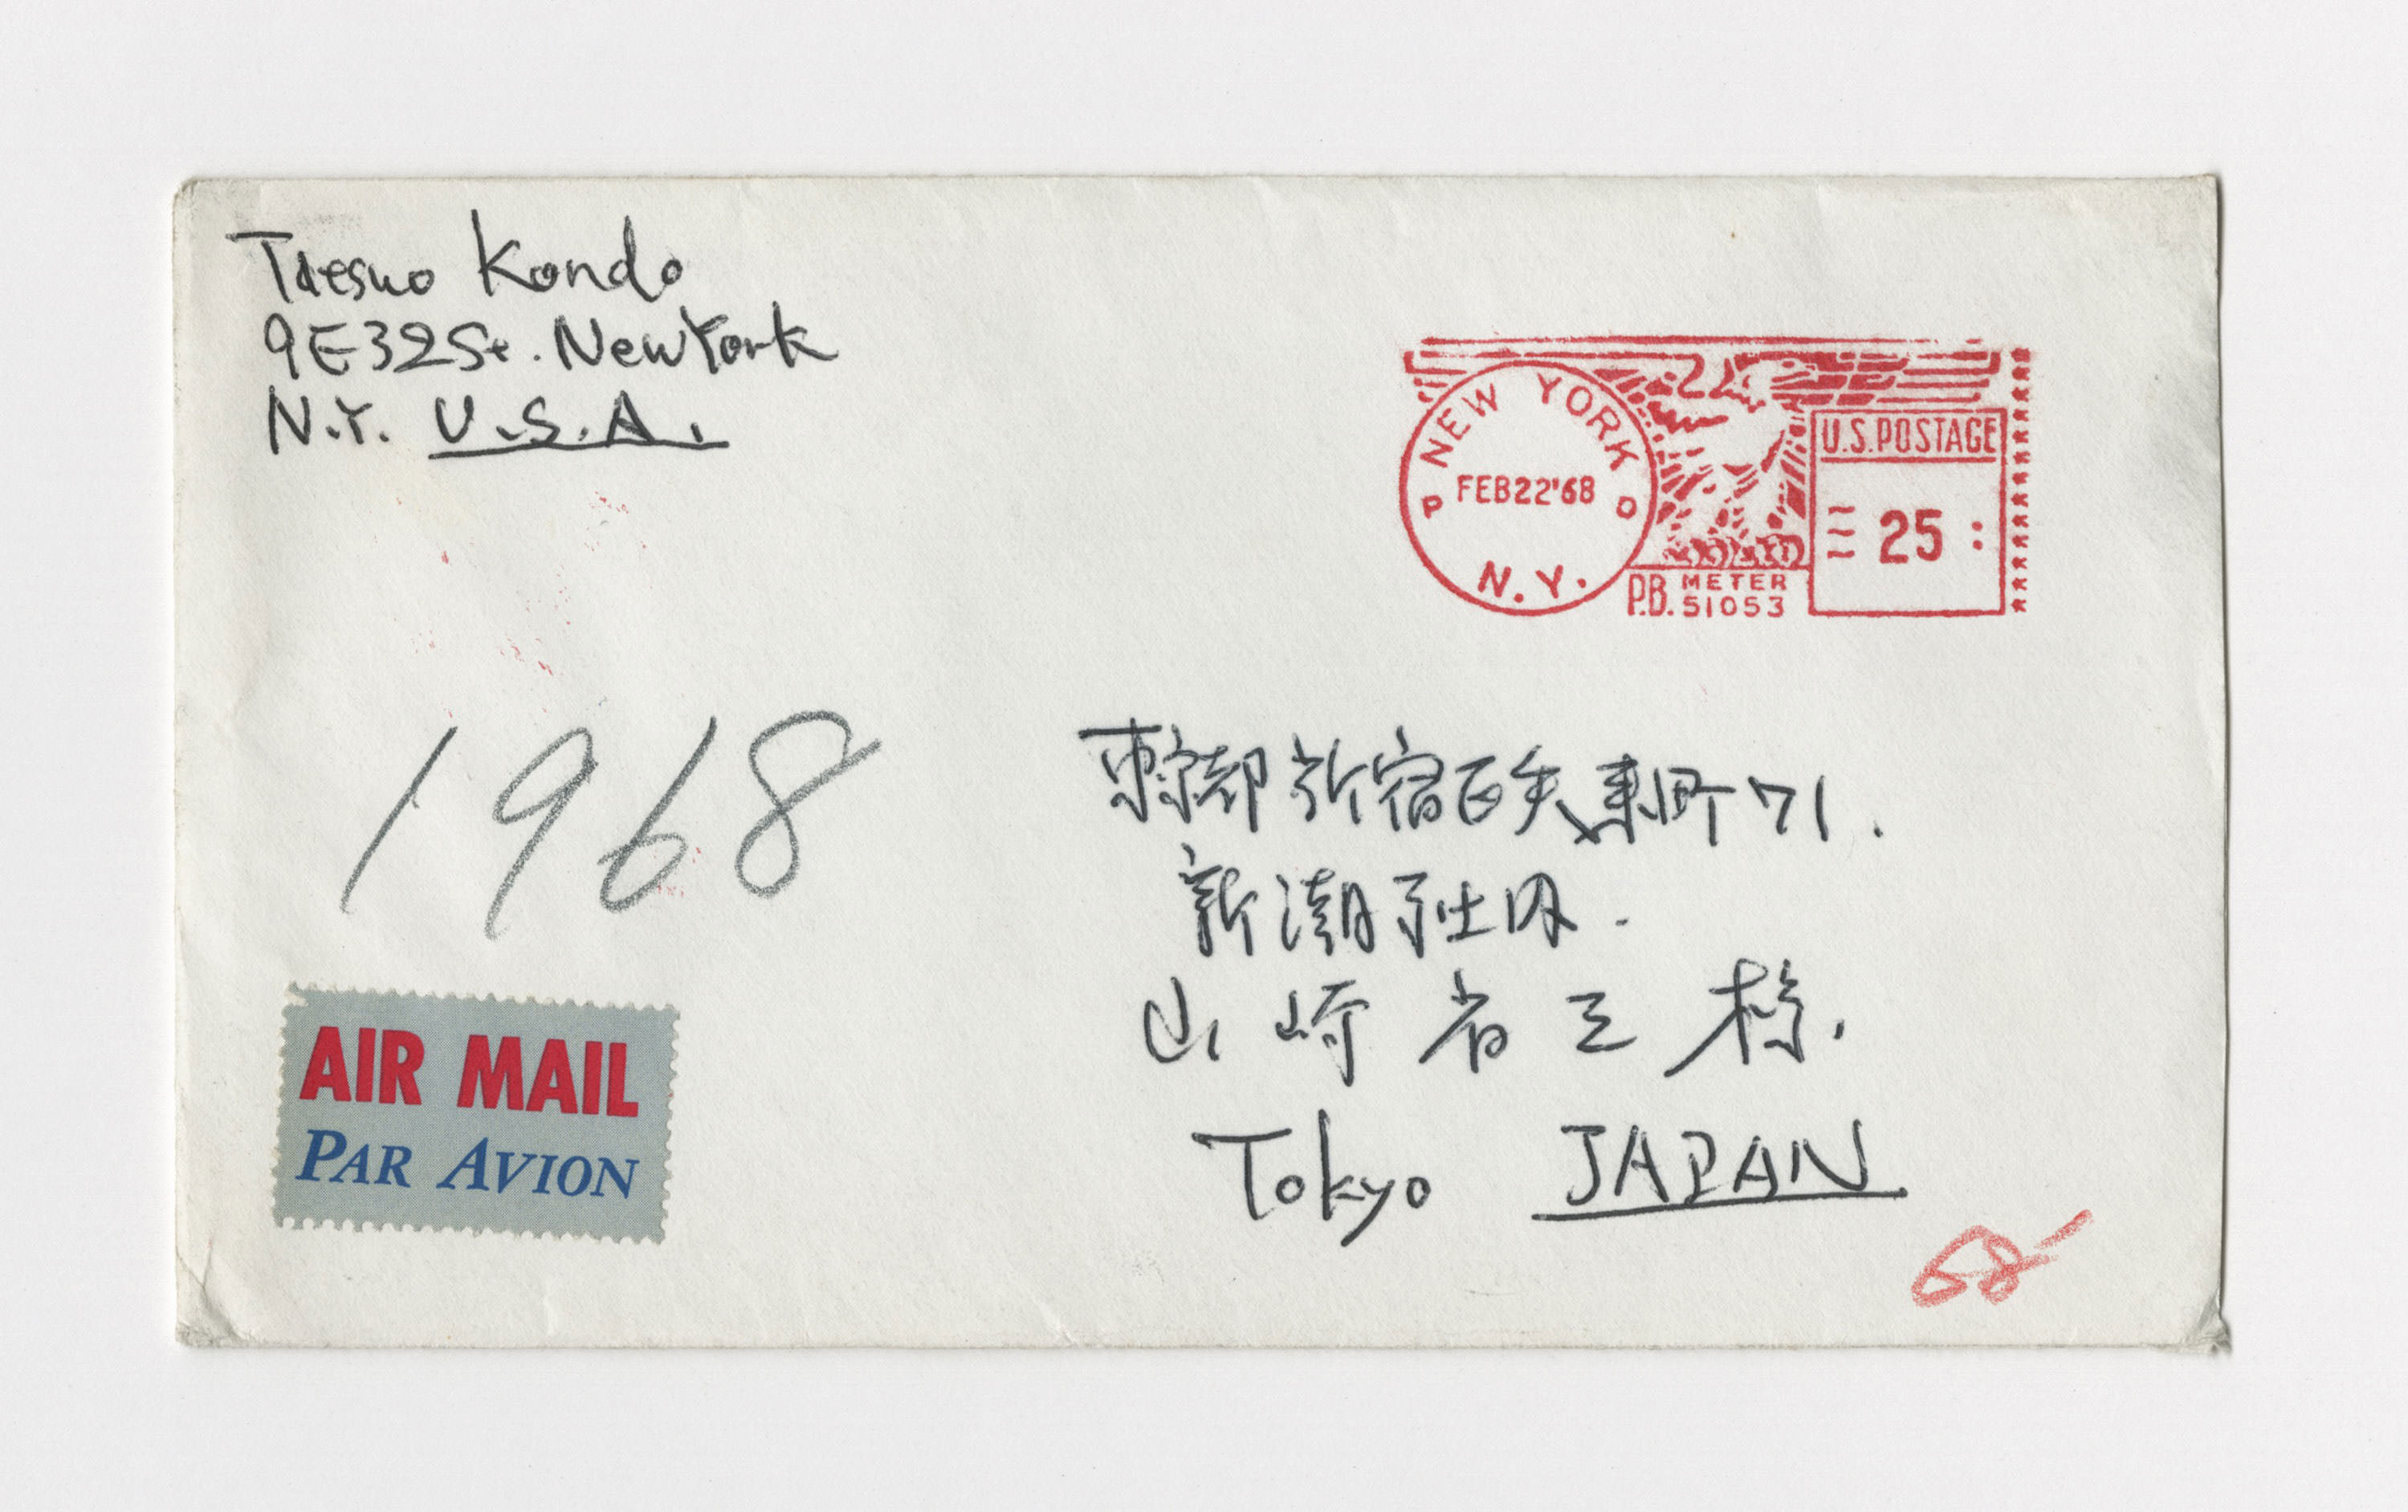 Tatsuo Kondo
9E32St. New York
N.Y. U.S.A.
NEW YORK
P FEB22'68 O
N.Y.
P.B. METER
51053
U.S.POSTAGE
25
1968
東京都新宿区矢来町71.
新潮社内.
山崎省三様.
Tokyo JAPAN
AIR MAIL
PAR AVION
68